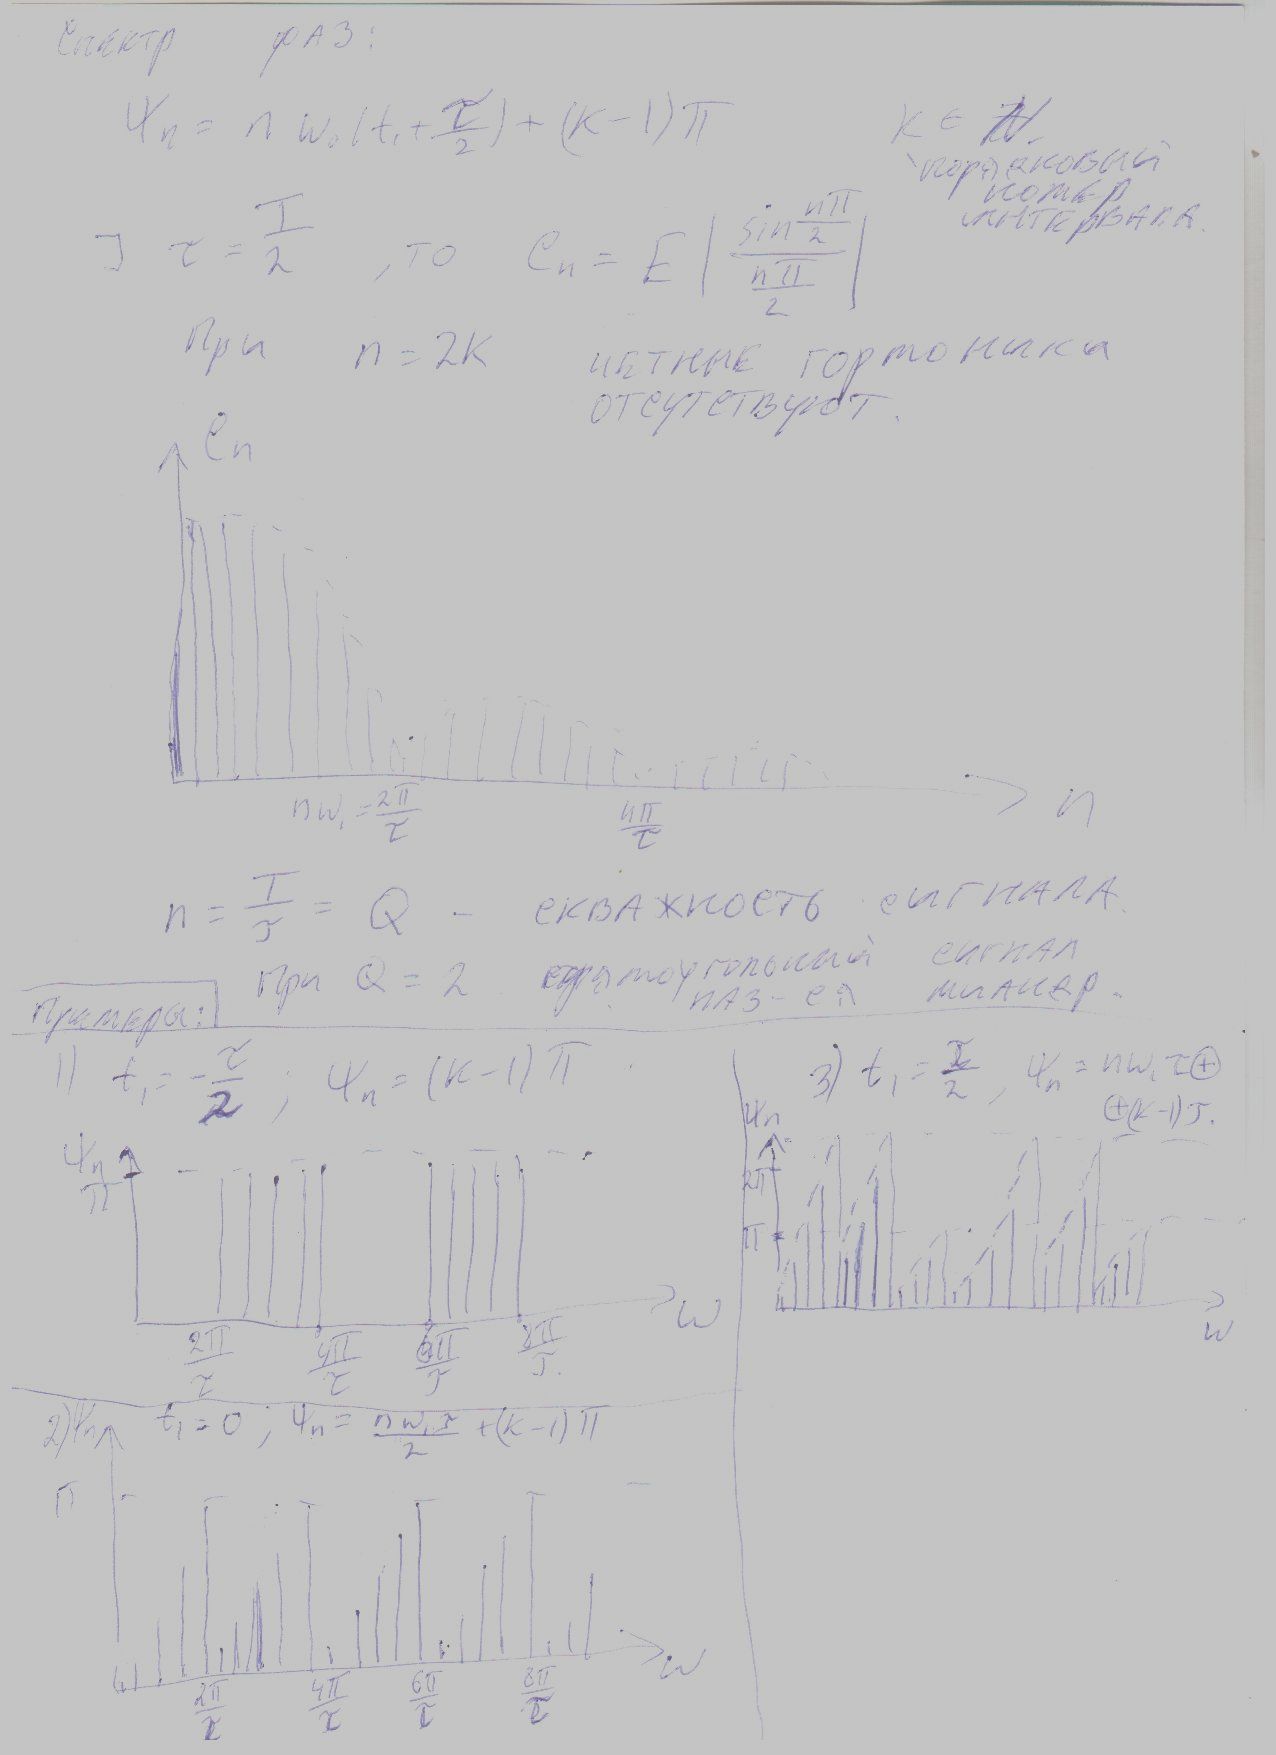 Спектр фаз:
Ψn = n w₀(t₁ + τ/2) + (K-1)π K ∈ N.
порядковый
номер
интервала.
] τ = T/2 , то Cn = E |sin nπ/2 / nπ/2|
При n = 2K четные гормоники
отсутствуют.
Cn
nw₁ = 2π/τ 4π/τ n
n = T/τ = Q - скважность сигнала.
При Q = 2 прямоугольный сигнал
наз-ся миандр.
Примеры:
1) t₁ = -τ/2 ; Ψn = (K-1)π
Ψn
π
2π/τ 4π/τ 6π/τ 8π/τ w
2) Ψn t₁ = 0 ; Ψn = nw₁τ/2 + (K-1)π
π
2π/τ 4π/τ 6π/τ 8π/τ w
3) t₁ = τ/2 , Ψn = nw₁τ ⊕
⊕ (K-1)π.
Ψn
2π
π
w